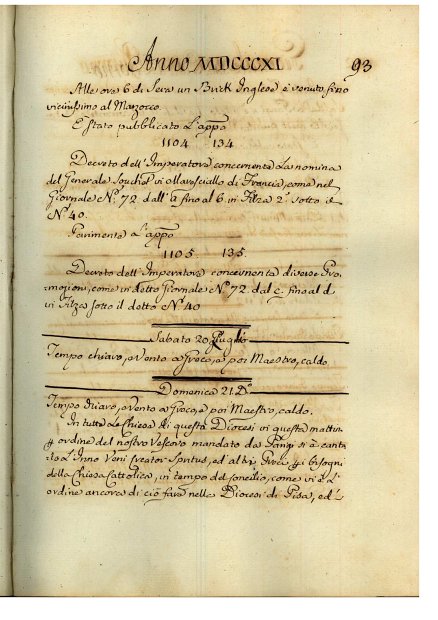 Anno MDCCCXI. 93
Alle ore 6 di Sera un Brick Inglese è venuto fino
vicinissimo al Marzocco.
E stato pubblicato L'appo
1104 134
Decreto dell'Imperatore concernente La nomina
del Generale Souchet di Maresciallo di Francia, come nel
Giornale No. 72 dall' a fino al b in Filza 2a sotto il
No 40.
Parimente L'appo
1105. 135.
Decreto dell'Imperatore concernente diverse Pro-
mozioni, come in detto Giornale No 72. dal c. fino al d
in Filza sotto il detto No 40
Sabato 20 Luglio
Tempo chiaro, e Vento a Greco, e poi Maestro, caldo.
Domenica 21. Do
Tempo chiaro, e Vento a Greco, e poi Maestro, caldo.
In tutte Le Chiese di questa Diocesi in questa mattina
ordine del nostro Vescovo mandato da Parigi si è canta-
to L'Inno Veni Creator Spritus, ed altre Preci bisogni
della Chiesa Cattolica, in tempo del Concilio, come vi è L'
ordine ancora di ciò fare nelle Diocesi di Pisa, ed